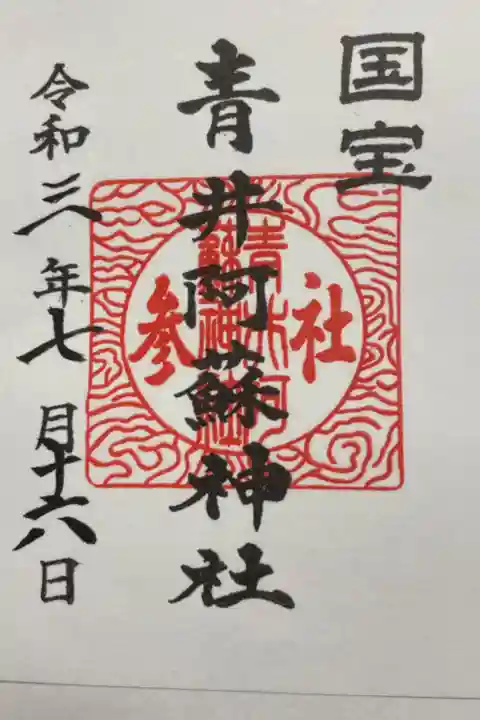 国宝
青井阿蘇神社
社参
青井阿蘇神社
令和三年七月十六日